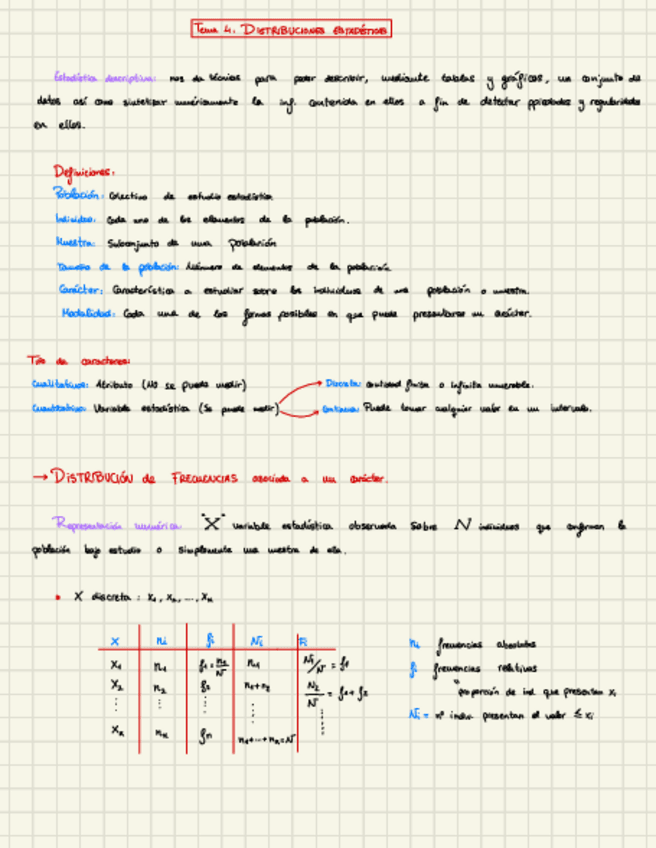 Tema 4. DISTRIBUCIONES ESTADÍSTICAS
Estadística descriptiva: nos da técnicas para poder describir, mediante tablas y gráficos, un conjunto de
datos así como sintetizar numéricamente la inf. contenida en ellos a fin de detectar ppiedades y regularidades
en ellos.
Definiciones:
Población: Colectivo de estudio estadístico
Individuo: Cada uno de los elementos de la población.
Muestra: Subconjunto de una población
Tamaño de la población: Número de elementos de la población
Carácter: Característica a estudiar sobre los individuos de una población o muestra.
Modalidad: Cada una de las formas posibles en que puede presentarse un carácter.
Tipo de caracteres:
Cualitativos: Atributo (No se puede medir)
Cuantitativo: Variable estadística (Se puede medir)
Discreta: cantidad finita o infinita numerable.
Continua: Puede tomar cualquier valor en un intervalo.
→ DISTRIBUCIÓN de FRECUENCIAS asociada a un carácter.
Representación numérica: "X" variable estadística observada sobre N individuos que conforman la
población bajo estudio o simplemente una muestra de ella.
• X discreta: x₁, x₂, ..., xₙ
X nᵢ fᵢ Nᵢ Fᵢ
x₁ n₁ f₁ = n₁/N n₁ N₁/N = f₁
x₂ n₂ f₂ n₁+n₂ N₂/N = f₁+f₂
⋮ ⋮ ⋮ ⋮ ⋮
xₙ nₙ fₙ n₁+...+nₙ=N
nᵢ frecuencias absolutas
fᵢ frecuencias relativas
proporción de ind. que presentan xᵢ
Nᵢ = nº indiv. presentan el valor ≤ xᵢ